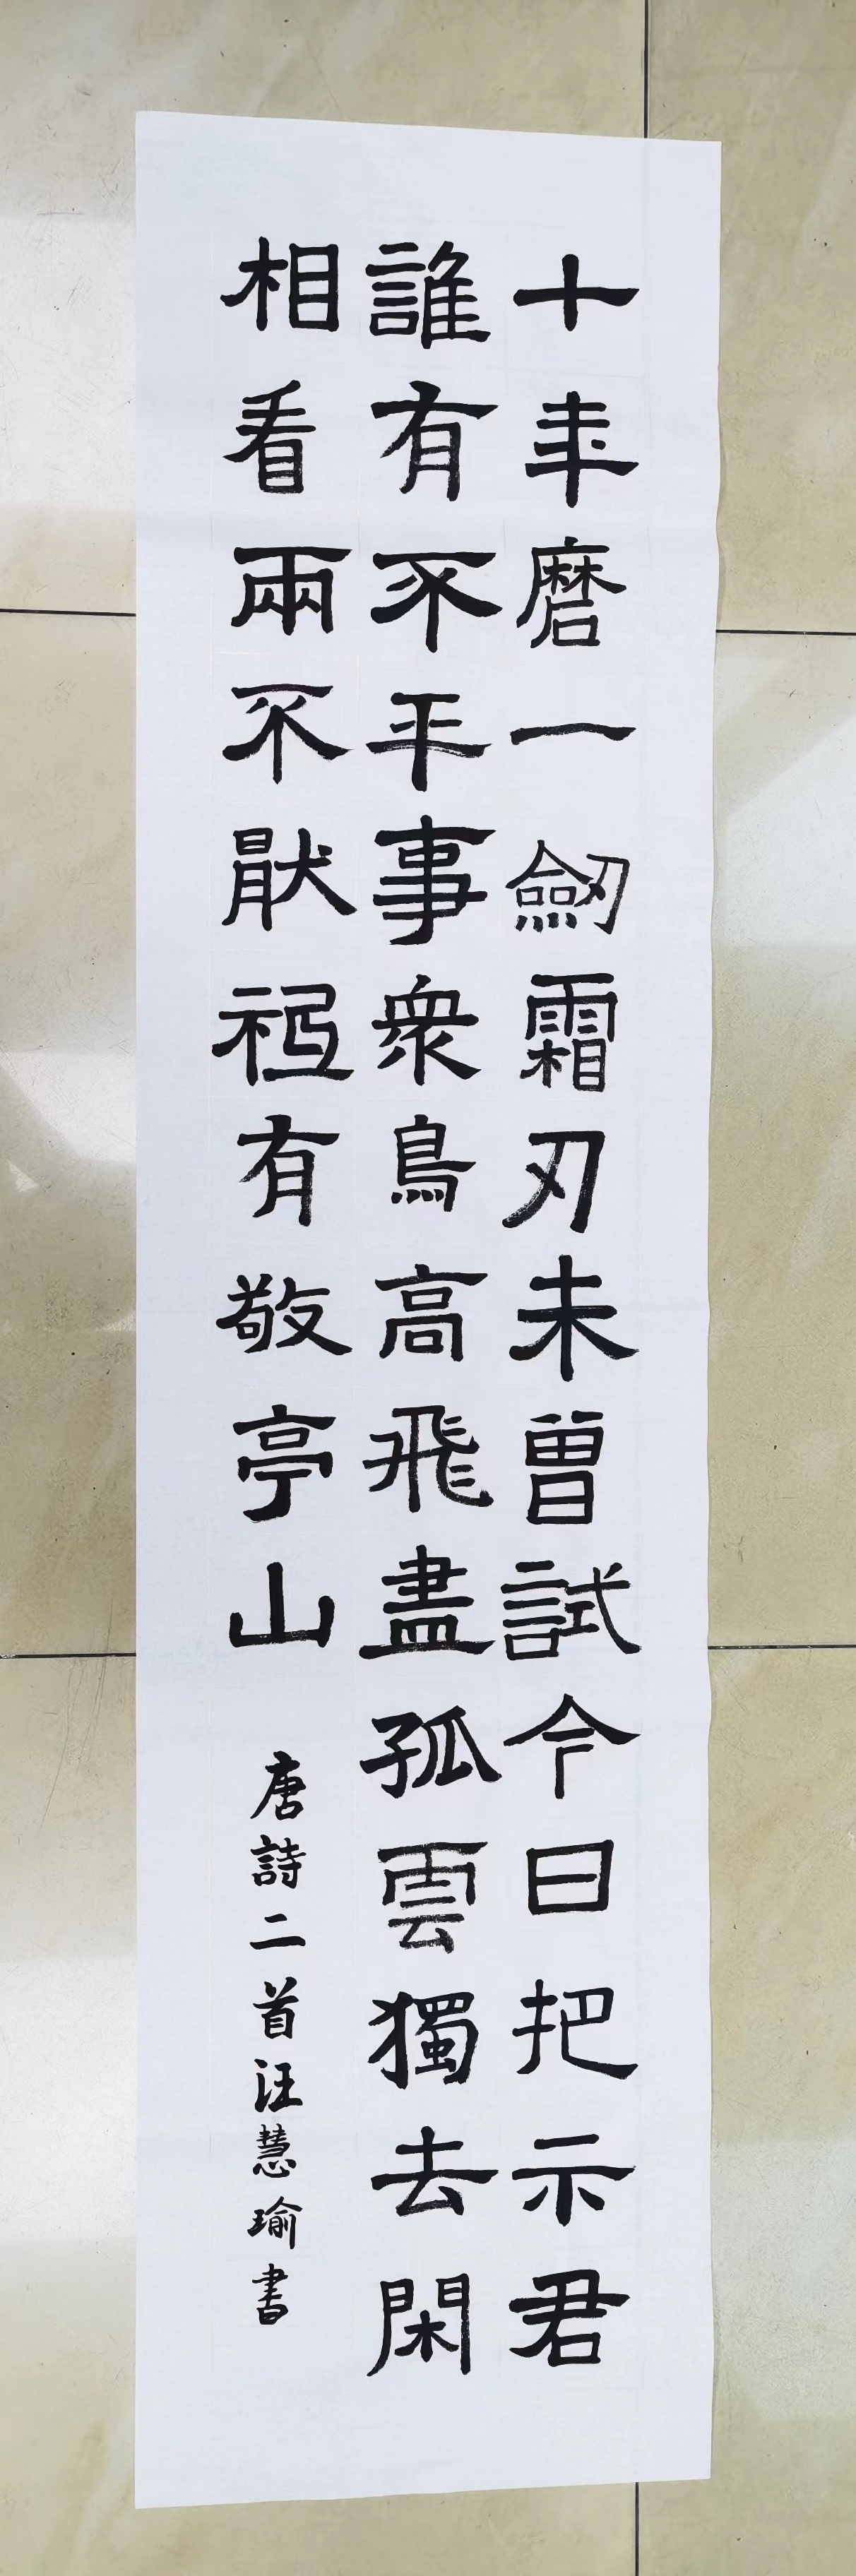 十年磨一劒霜刃未曾試今日把示君
誰有不平事衆鳥高飛盡孤雲獨去閑
相看兩不猒袛有敬亭山
唐詩二首汪慧瑜書